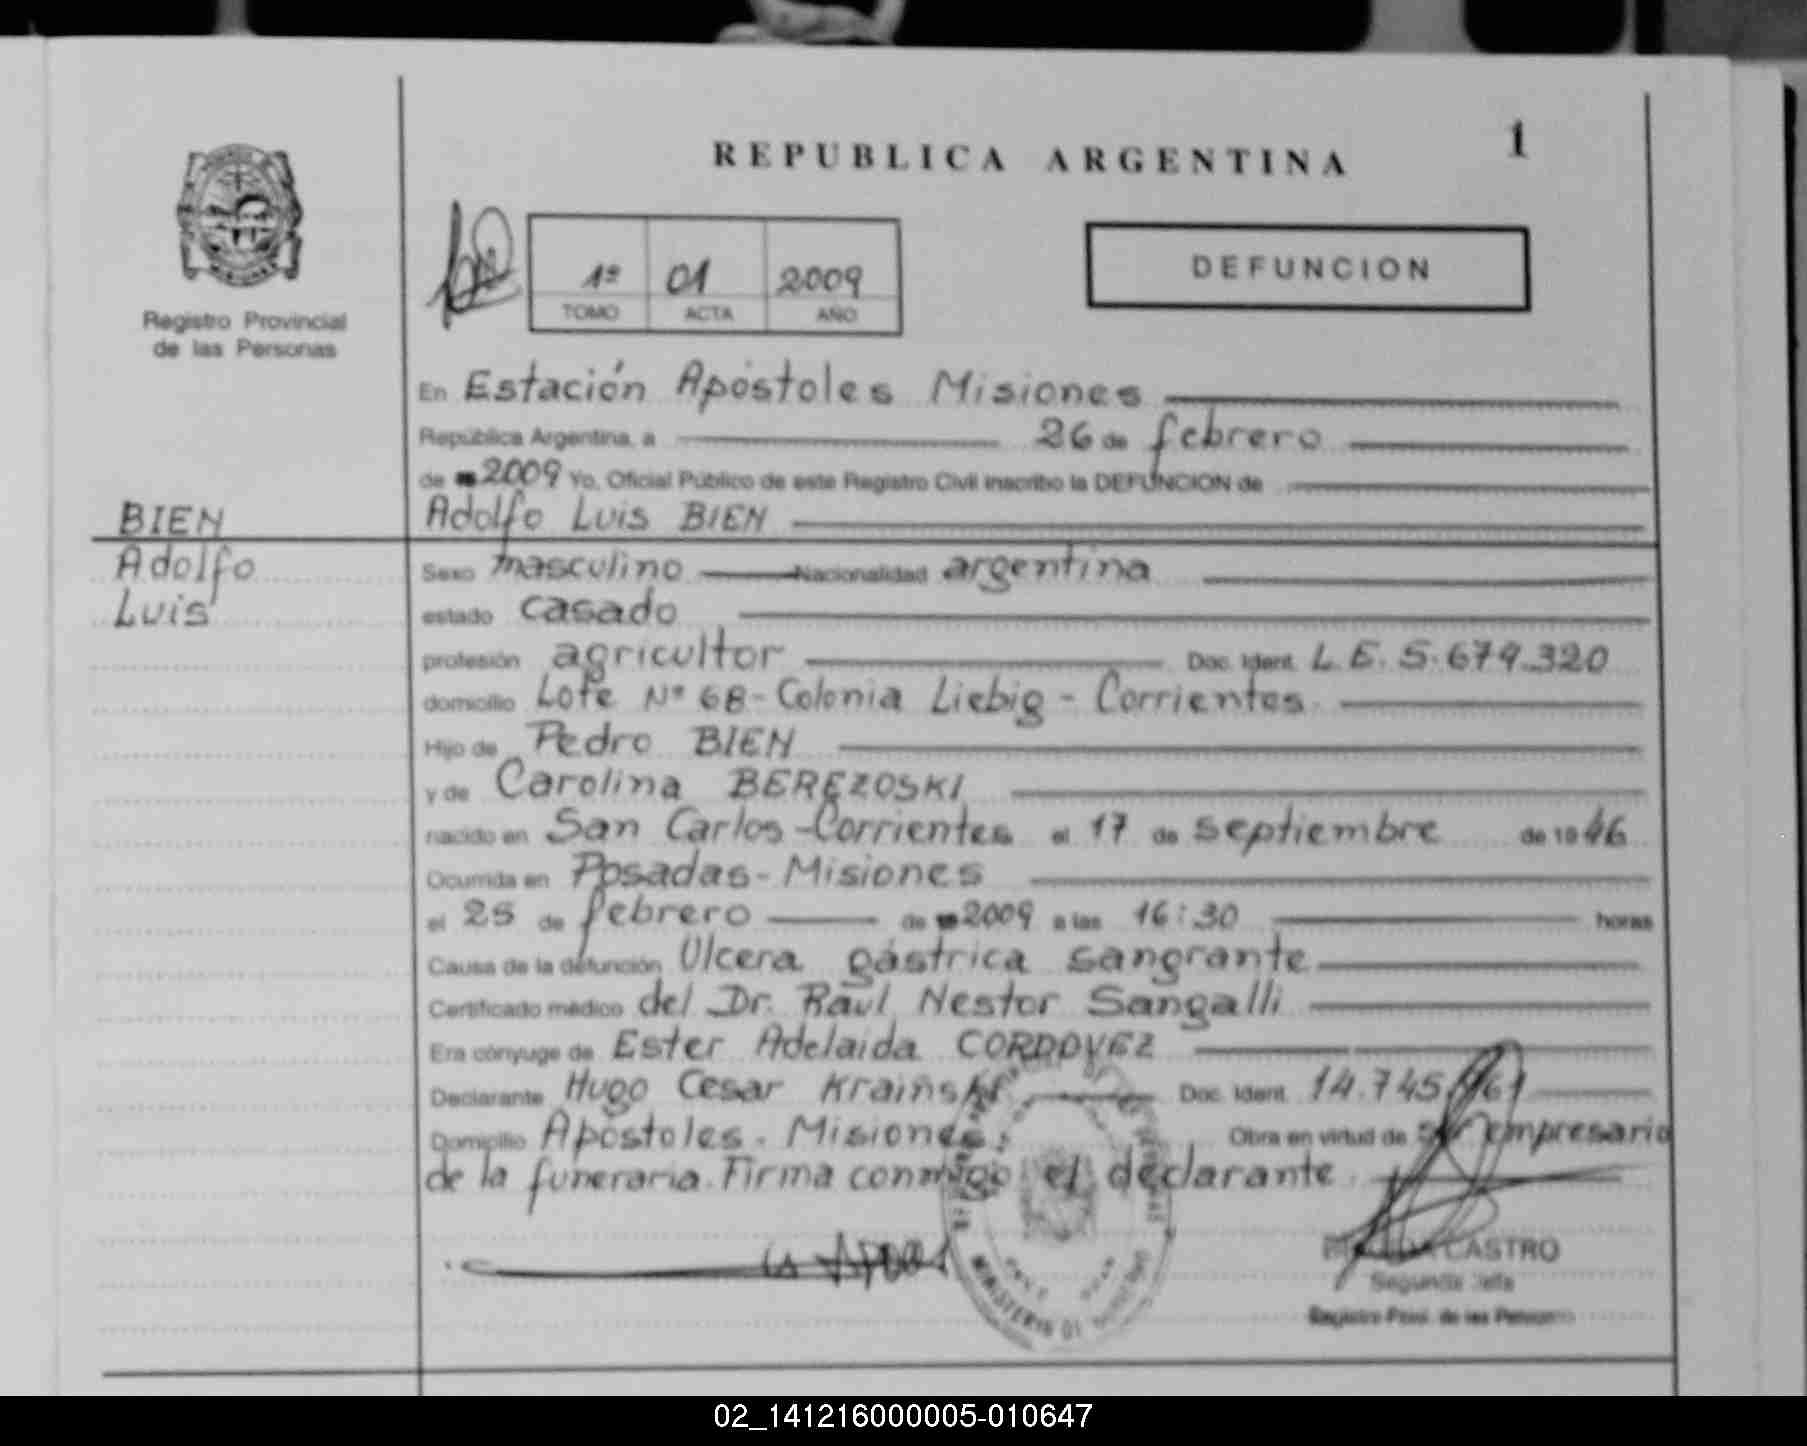 REPUBLICA ARGENTINA
1
Registro Provincial
de las Personas
1º 01 2009
TOMO ACTA AÑO
DEFUNCION
En Estación Apóstoles Misiones
República Argentina, a 26 de febrero
de 2009 Yo, Oficial Público de este Registro Civil inscribo la DEFUNCION de
BIEN
Adolfo
Luis
Adolfo Luis BIEN
Sexo masculino Nacionalidad argentina
estado casado
profesión agricultor Doc. Ident. L.E. 5.679.320
domicilio Lote Nº 68 - Colonia Liebig - Corrientes.
Hijo de Pedro BIEN
y de Carolina BEREZOSKI
nacido en San Carlos - Corrientes el 17 de septiembre de 1946
Ocurrida en Posadas - Misiones
el 25 de febrero de 2009 a las 16:30 horas
Causa de la defunción Ulcera gástrica sangrante
Certificado médico del Dr. Raúl Nestor Sangalli
Era cónyuge de Ester Adelaida CORDOVEZ
Declarante Hugo Cesar Krainski Doc. Ident. 14.745.
Domicilio Apóstoles. Misiones. Obra en virtud de ser empresario
de la funeraria. Firma conmigo el declarante.
MINISTERIO DE
CASTRO
Segunda Jefa
Registro Prov. de las Personas
02_141216000005-010647